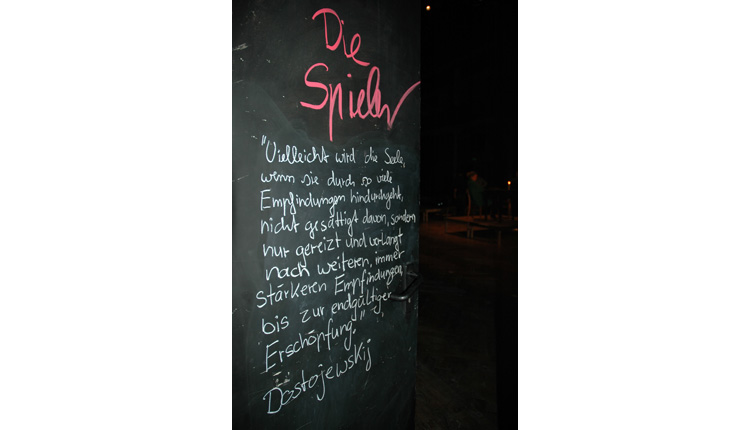 Die
Spieler
"Vielleicht wird die Seele,
wenn sie durch so viele
Empfindungen hindurchgeht,
nicht gesättigt davon, sondern
nur gereizt und verlangt
nach weiteren, immer
stärkeren Empfindungen,
bis zur endgültiger
Erschöpfung."
Dostojewskij